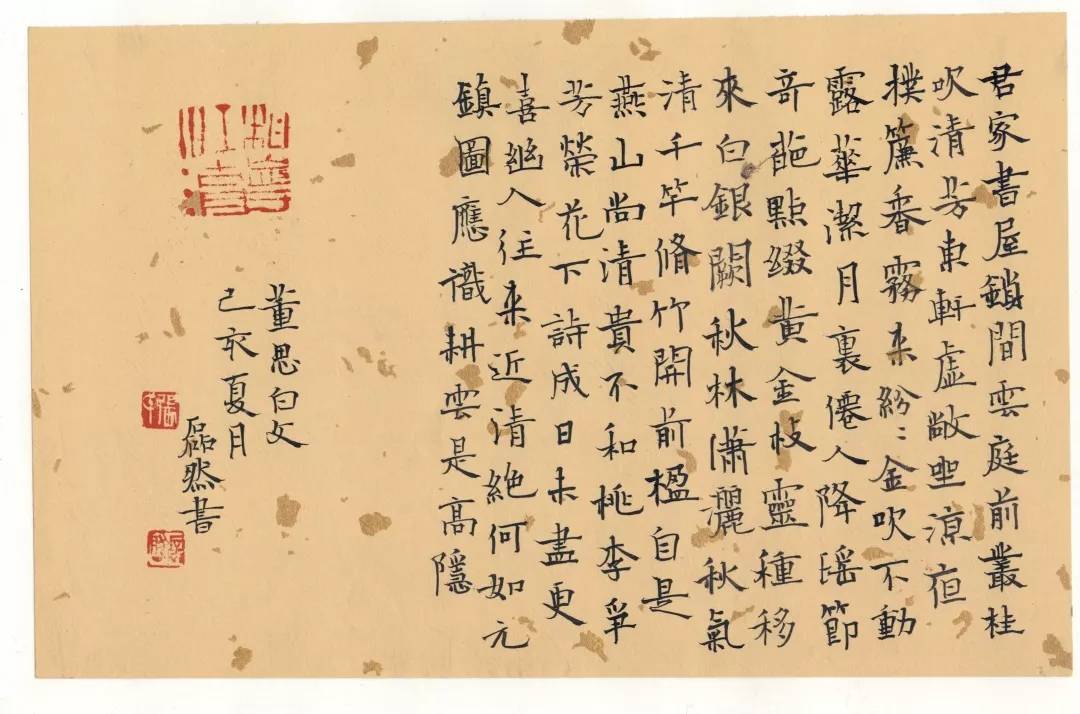 君家書屋鎖間雲庭前叢桂
吹清芳東軒虛敞坐涼夜
撲簾香霧來紛〻金吹不動
露華潔月裏僊人降瑶節
奇葩點綴黄金枝靈種移
來白銀闕秋林潇灑秋氣
清千竿脩竹開前楹自是
燕山尚清貴不和桃李爭
芳榮花下詩成日未盡更
喜幽人往来近清絶何如元
鎮圖應識耕雲是高隱
董思白文
己亥夏月
磊然書